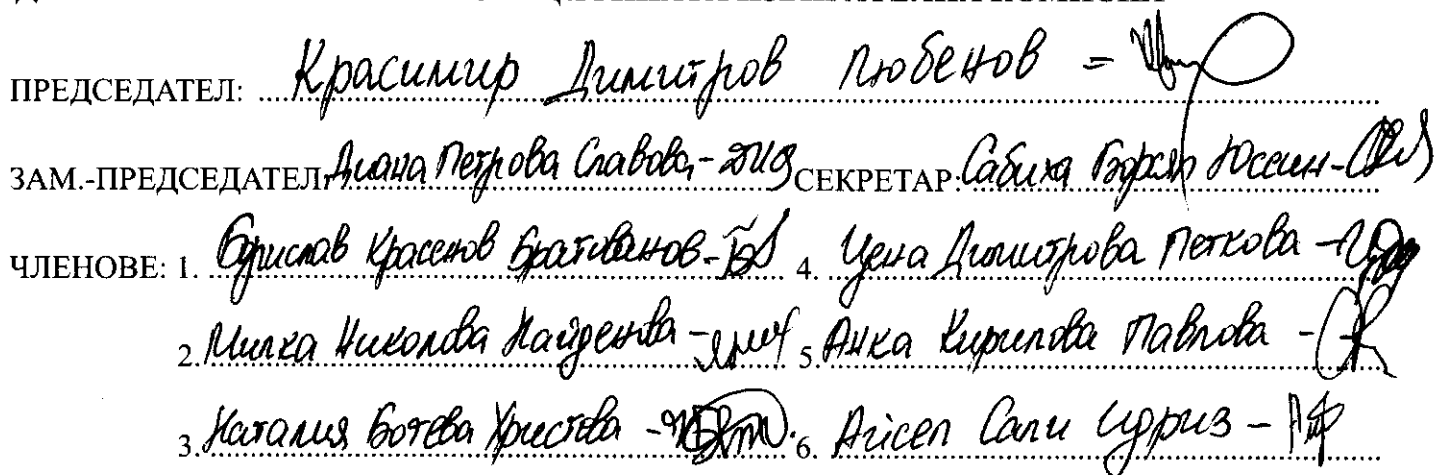 ПРЕДСЕДАТЕЛ: Красимир Димитров Любенов =
ЗАМ.-ПРЕДСЕДАТЕЛ: Диана Петрова Славова - СЕКРЕТАР: Сабиха Юссеин -
ЧЛЕНОВЕ: 1. Борислав Красенов Братованов - 4. Цена Димитрова Петкова -
2. Милка Николова Найденова - 5. Анка Кирилова Павлова -
3. Наталия Ботева Христова - 6. Айсел Сали Идриз -